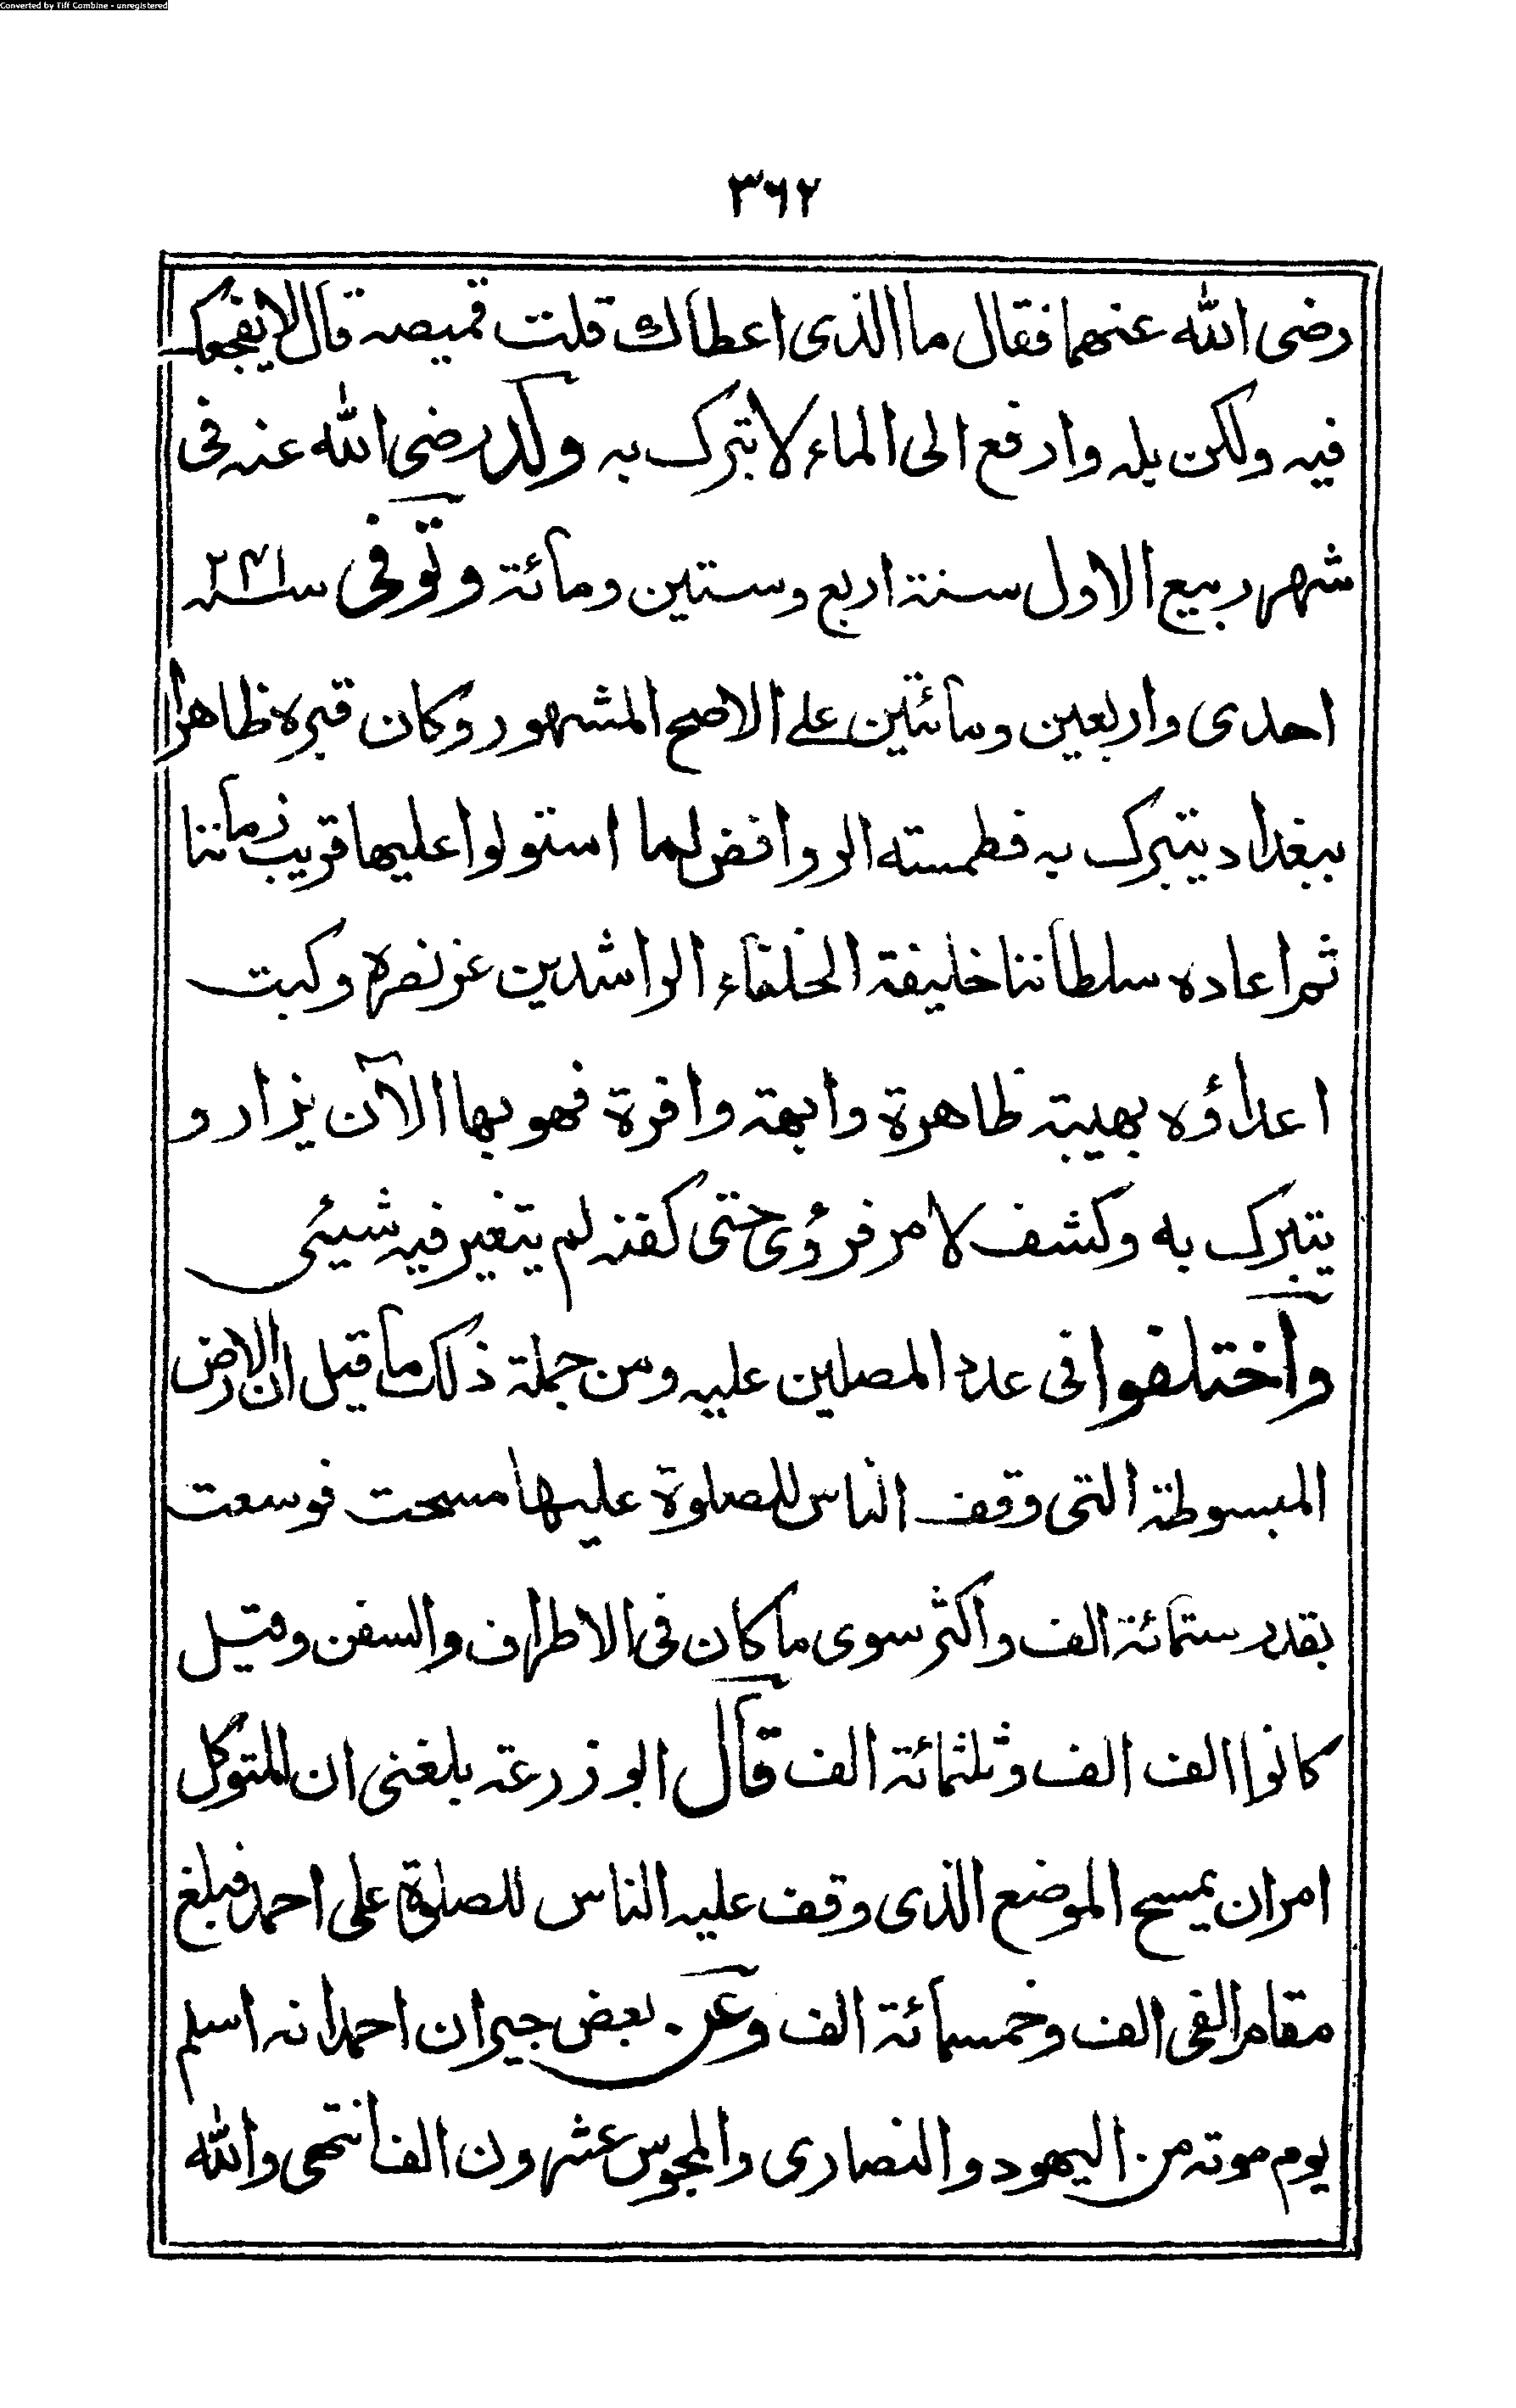 Converted by Tiff Combine - unregistered
٣٦٢
رضى الله عنهما فقال ما الذى اعطاك قلت قميصه قال لا يفجعك
فيه ولكن بله وادفع الى الماء لا تبرك به ولد رضى الله عنه فى
شهر ربيع الاول سنة اربع وستين ومائة وتوفى سنة ٢٤١
احدى واربعين ومائتين على الاصح المشهور وكان قبره ظاهرا
ببغداد يتبرك به فطمسته الروافض لما استولوا عليها قريب زماننا
ثم اعاده سلطاننا خليفة الخلفاء الراشدين عز نصره وكبت
اعداؤه بهيبة ظاهرة وابهة وافرة فهو بها الآن يزار و
يتبرك به وكشف لامر فرؤى حتى كفنه لم يتغير فيه شيئى
واختلفوا فى عدد المصلين عليه ومن جملة ذلك ما قيل ان الارض
المبسوطة التى وقف الناس للصلوة عليها مسحت فوسعت
بقدر ستمائة الف واكثر سوى ما كان فى الاطراف والسفن وقيل
كانوا الف الف وثلثمائة الف قال ابو زرعة بلغنى ان المتوكل
امر ان يمسح الموضع الذى وقف عليه الناس للصلوة على احمد فبلغ
مقام الفى الف وخمسمائة الف وعن بعض جيران احمد انه اسلم
يوم موته من اليهود والنصارى والمجوس عشرون الفا انتهى والله